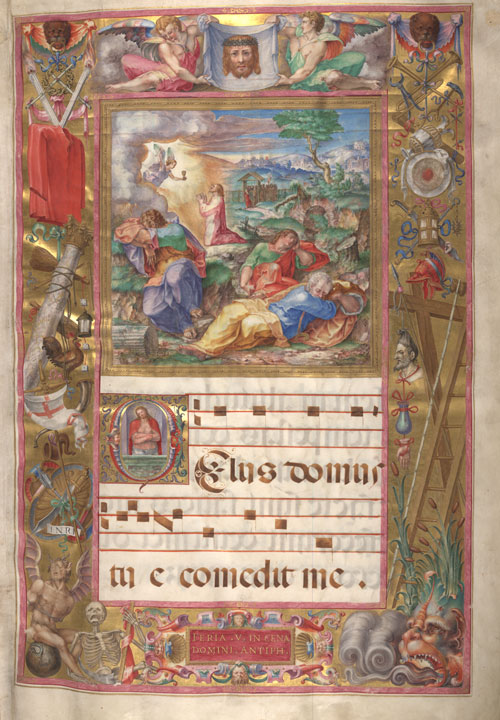 INRI
ZElus domus
tu e comedit me .
FERIA · V · IN CENA
DOMINI · ANTIPH ·